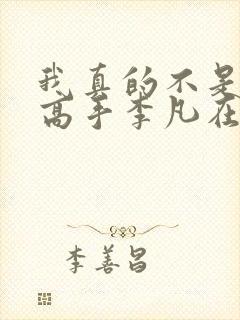 我真的不是
高手李凡在
李善昌